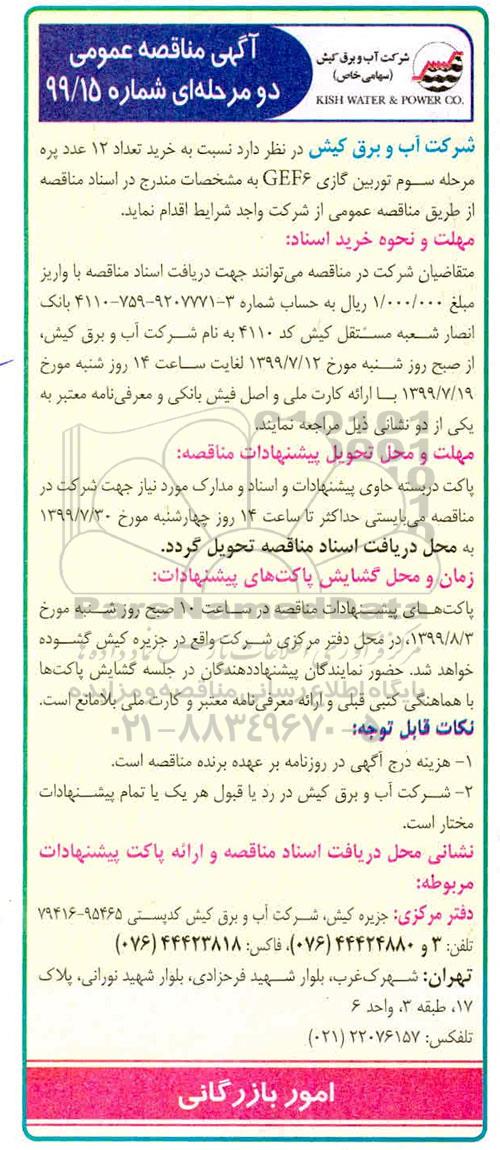 آگهی مناقصه عمومی
دو مرحله‌ای شماره ۹۹/۱۵
شرکت آب و برق کیش
(سهامی خاص)
KISH WATER & POWER CO.
شرکت آب و برق کیش در نظر دارد نسبت به خرید تعداد ۱۲ عدد پره
مرحله سوم توربین گازی GEF۶ به مشخصات مندرج در اسناد مناقصه
از طریق مناقصه عمومی از شرکت واجد شرایط اقدام نماید.
مهلت و نحوه خرید اسناد:
متقاضیان شرکت در مناقصه می‌توانند جهت دریافت اسناد مناقصه با واریز
مبلغ ۱/۰۰۰/۰۰۰ ریال به حساب شماره ۳-۹۲۰۷۷۷۱-۷۵۹-۴۱۱۰ بانک
انصار شعبه مستقل کیش کد ۴۱۱۰ به نام شرکت آب و برق کیش،
از صبح روز شنبه مورخ ۱۳۹۹/۷/۱۲ لغایت ساعت ۱۴ روز شنبه مورخ
۱۳۹۹/۷/۱۹ با ارائه کارت ملی و اصل فیش بانکی و معرفی‌نامه معتبر به
یکی از دو نشانی ذیل مراجعه نمایند.
مهلت و محل تحویل پیشنهادات مناقصه:
پاکت دربسته حاوی پیشنهادات و اسناد و مدارک مورد نیاز جهت شرکت در
مناقصه می‌بایستی حداکثر تا ساعت ۱۴ روز چهارشنبه مورخ ۱۳۹۹/۷/۳۰
به محل دریافت اسناد مناقصه تحویل گردد.
زمان و محل گشایش پاکت‌های پیشنهادات:
پاکت‌های پیشنهادات مناقصه در ساعت ۱۰ صبح روز شنبه مورخ
۱۳۹۹/۸/۳، در محل دفتر مرکزی شرکت واقع در جزیره کیش گشوده
خواهد شد. حضور نمایندگان پیشنهاددهندگان در جلسه گشایش پاکت‌ها
با هماهنگی کتبی قبلی و ارائه معرفی‌نامه معتبر و کارت ملی بلامانع است.
ParsNamadData
پایگاه اطلاع رسانی مناقصه و مزایده
۰۲۱-۸۸۳۴۹۶۷۰-۵
نکات قابل توجه:
۱- هزینه درج آگهی در روزنامه بر عهده برنده مناقصه است.
۲- شرکت آب و برق کیش در رد یا قبول هر یک یا تمام پیشنهادات
مختار است.
نشانی محل دریافت اسناد مناقصه و ارائه پاکت پیشنهادات
مربوطه:
دفتر مرکزی: جزیره کیش، شرکت آب و برق کیش کدپستی ۹۵۴۶۵-۷۹۴۱۶
تلفن: ۳ و ۴۴۴۲۴۸۸۰ (۰۷۶)، فاکس: ۴۴۴۲۳۸۱۸ (۰۷۶)
تهران: شهرک‌غرب، بلوار شهید فرحزادی، بلوار شهید نورانی، پلاک
۱۷، طبقه ۳، واحد ۶
تلفکس: ۲۲۰۷۶۱۵۷ (۰۲۱)
امور بازرگانی